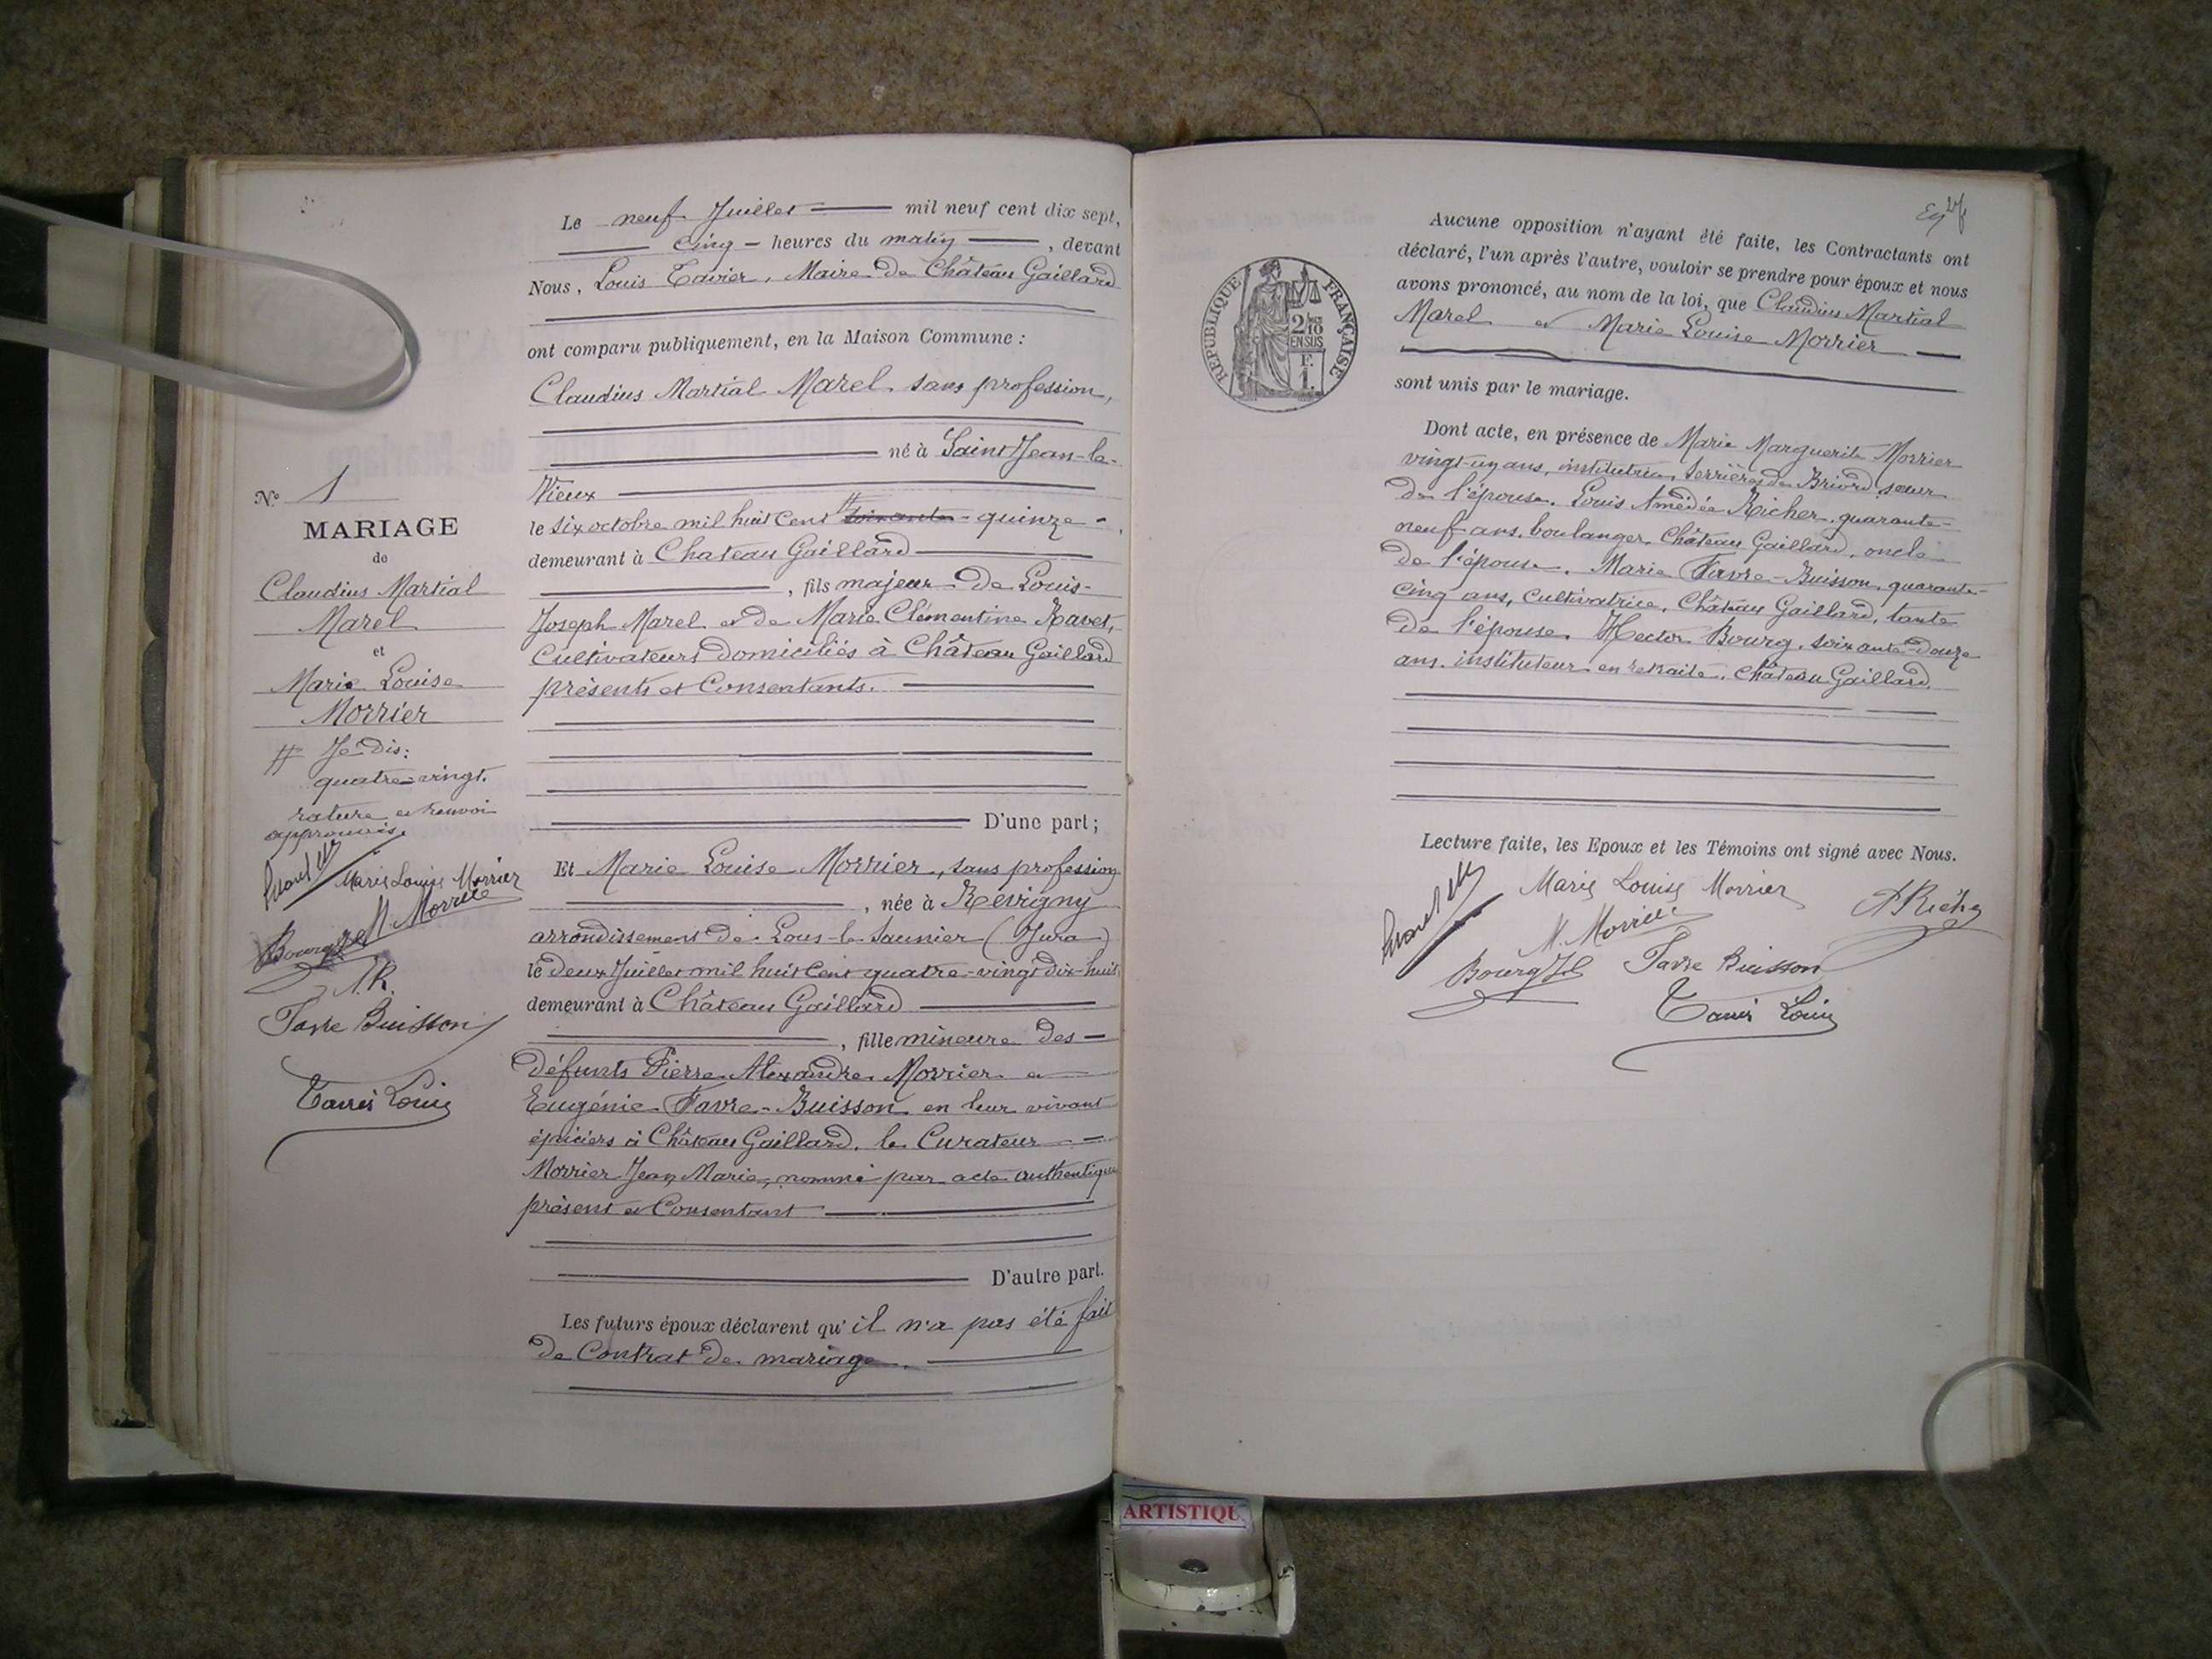 Le neuf Juillet mil neuf cent dix sept,
cinq heures du matin, devant
Nous, Louis Tavier, Maire de Château Gaillard
ont comparu publiquement, en la Maison Commune :
Claudius Martial Marel sans profession,
né à Saint Jean-le-
Vieux
le six octobre mil huit cent # soixante-quinze
demeurant à Chateau Gaillard
, fils majeur de Louis-
Joseph Marel et de Marie Clémentine Ravet,
Cultivateurs domiciliés à Château Gaillard
présents et Consentants.
D'une part ;
Et Marie Louise Morrier, sans profession
, née à Revigny
arrondissement de Lons-le-Saunier (Jura)
le deux Juillet mil huit cent quatre-vingt dix-huit
demeurant à Château Gaillard
, fille mineure des
défunts Pierre Alexandre Morrier et
Eugénie Favre-Buisson en leur vivant
épiciers à Château Gaillard, le Curateur
Morrier Jean Marie, nommé par acte authentique
présent et Consentant
D'autre part.
Les futurs époux déclarent qu'il n'a pas été fait
de Contrat de mariage.
N° 1
MARIAGE
de
Claudius Martial
Marel
et
Marie Louise
Morrier
# Je dis :
quatre-vingt.
rature et renvoi
approuvés.
Marie Louise Morrier
M. Morrier
Bourg
A.R.
Favre Buisson
Tavier Louis
Aucune opposition n'ayant été faite, les Contractants ont
déclaré, l'un après l'autre, vouloir se prendre pour époux et nous
avons prononcé, au nom de la loi, que Claudius Martial
Marel et Marie Louise Morrier
sont unis par le mariage.
Dont acte, en présence de Marie Marguerite Morrier
vingt-un ans, institutrice, Serrières de Briord, sœur
de l'épouse. Louis Amédée Richer, quarante-
neuf ans, boulanger, Château Gaillard, oncle
de l'épouse. Marie Favre-Buisson, quarante-
cinq ans, Cultivatrice, Château Gaillard, tante
de l'épouse. Hector Bourg, soixante-douze
ans, instituteur en retraite, Château Gaillard.
Lecture faite, les Epoux et les Témoins ont signé avec Nous.
Marie Louise Morrier
A Richer
M. Morrier
Bourg
Favre Buisson
Tavier Louis
RÉPUBLIQUE FRANÇAISE
2/10
EN SUS
F.
1.
ARTISTIQU